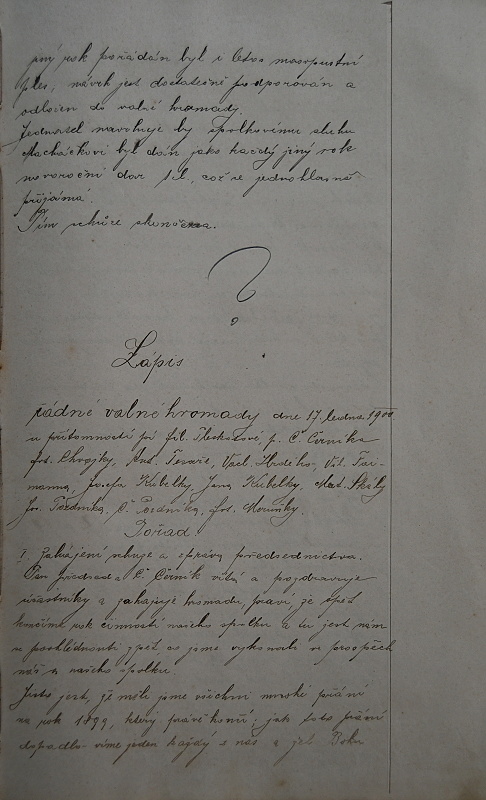 jiný rok pořádán byl i letos masopustní
ples, návrh jest dostatečně podporován a
odložen do valné hromady.
Jednatel navrhuje by spolkovému sluhu
Macháčkovi byl dán jako každý jiný rok
novoroční dar 1 zl., což se jednohlasně
přijímá.
Tím schůze skončena.
?
Zápis
řádné valné hromady dne 17. ledna 1900
u přítomnosti pp. č. Černíka
Ant. Tesaře, Václ. Hrdého, Vit.
Josefa Kubelky, Jana Kubelky, Mat. Skály
Jos. Pozdníka, Č. Pozdníka,
Pořad
I. Zahájení schůze a zpráva předsednictva.
Pan předseda Č. Černík vítá a pozdravuje
účastníky a zahajuje hromadu praví, že opět
končíme rok činnosti našeho spolku a tu jest nám
se poohlédnouti zpět co jsme vykonali ve prospěch
náš a našeho spolku.
Jisto jest, že měli jsme všichni mnohé přání
na rok 1899, který právě končí; jak toto přání
dopadlo víme jeden každý z nás a jen Bohu